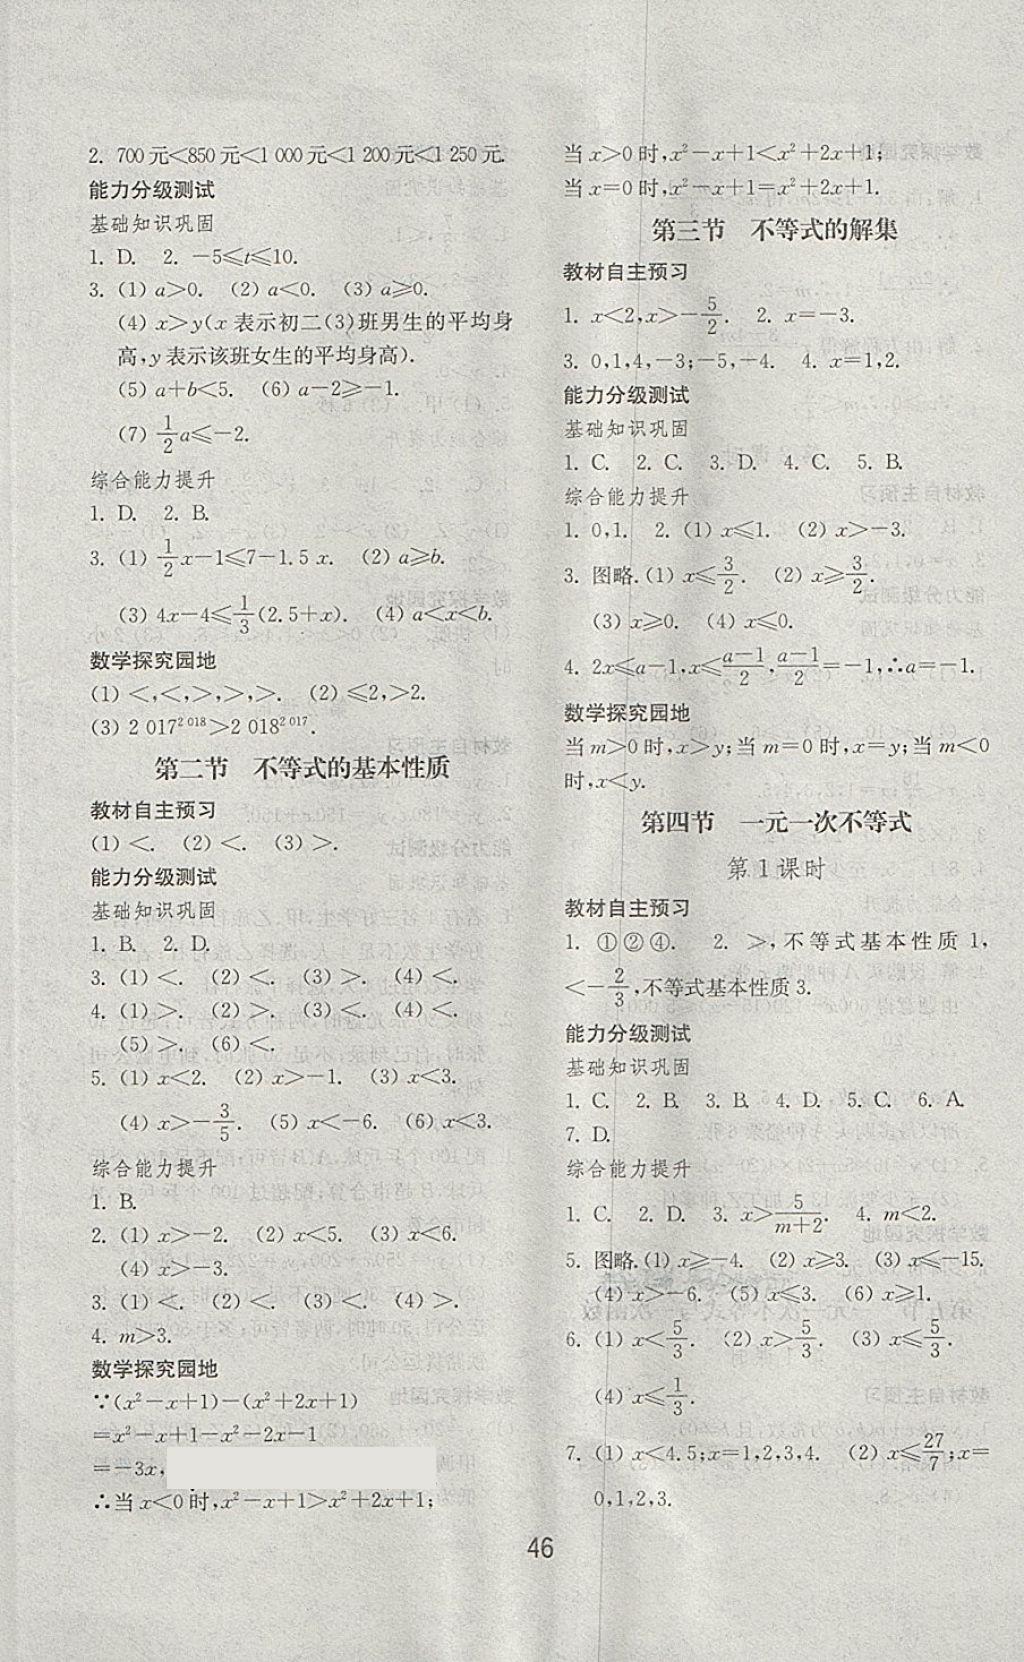 2. 700元<850元<1 000元<1 200元<1 250元.
能力分级测试
基础知识巩固
1. D. 2. -5≤t≤10.
3. (1) a>0. (2) a<0. (3) a≥0.
(4) x>y(x表示初二(3)班男生的平均身
高,y表示该班女生的平均身高).
(5) a+b<5. (6) a-2≥-1.
(7) 1/2a≤-2.
综合能力提升
1. D. 2. B.
3. (1) 1/2x-1≤7-1.5 x. (2) a≥b.
(3) 4x-4≤1/3(2.5+x). (4) a<x<b.
数学探究园地
(1) <,<,>,>,>. (2) ≤2,>2.
(3) 2 017²⁰¹⁸>2 018²⁰¹⁷.
第二节 不等式的基本性质
教材自主预习
(1) <. (2) <. (3) >.
能力分级测试
基础知识巩固
1. B. 2. D.
3. (1) <. (2) <. (3) >. (4) <.
4. (1) >. (2) >. (3) <. (4) <.
(5) >. (6) <.
5. (1) x<2. (2) x>-1. (3) x<3.
(4) x>-3/5. (5) x<-6. (6) x<3.
综合能力提升
1. B.
2. (1) x>-2. (2) x<5. (3) x<6.
(4) x>-3.
3. (1) <. (2) <. (3) <. (4) >.
4. m>3.
数学探究园地
∵(x²-x+1)-(x²+2x+1)
=x²-x+1-x²-2x-1
=-3x,
∴当x<0时,x²-x+1>x²+2x+1;
当x>0时,x²-x+1<x²+2x+1;
当x=0时,x²-x+1=x²+2x+1.
第三节 不等式的解集
教材自主预习
1. x<2,x>-5/2. 2. x=-3.
3. 0,1,4,-3;-5,-4. 4. x=1,2.
能力分级测试
基础知识巩固
1. C. 2. C. 3. D. 4. C. 5. B.
综合能力提升
1. 0,1. 2. (1) x≤1. (2) x>-3.
3. 图略.(1) x≤3/2. (2) x≥3/2.
(3) x≥0. (4) x≤0.
4. 2x≤a-1,x≤(a-1)/2,(a-1)/2=-1,∴a=-1.
数学探究园地
当m>0时,x>y;当m=0时,x=y;当m<0
时,x<y.
第四节 一元一次不等式
第1课时
教材自主预习
1. ①②④. 2. >,不等式基本性质1,
<-2/3,不等式基本性质3.
能力分级测试
基础知识巩固
1. C. 2. B. 3. B. 4. D. 5. C. 6. A.
7. D.
综合能力提升
1. C. 2. D. 3. x>5/(m+2). 4. m<2.
5. 图略.(1) x≥-4. (2) x≥3. (3) x≤-15.
(4) x>-6. (5) x≤3. (6) x≥1.
6. (1) x<5/3. (2) x>5/3. (3) x≤5/3.
(4) x≤1/3.
7. (1) x<4.5;x=1,2,3,4. (2) x≤27/7;x=
0,1,2,3.
46